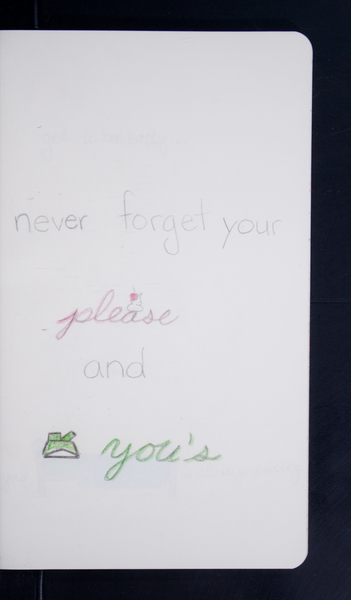 never forget your
please
and
you's